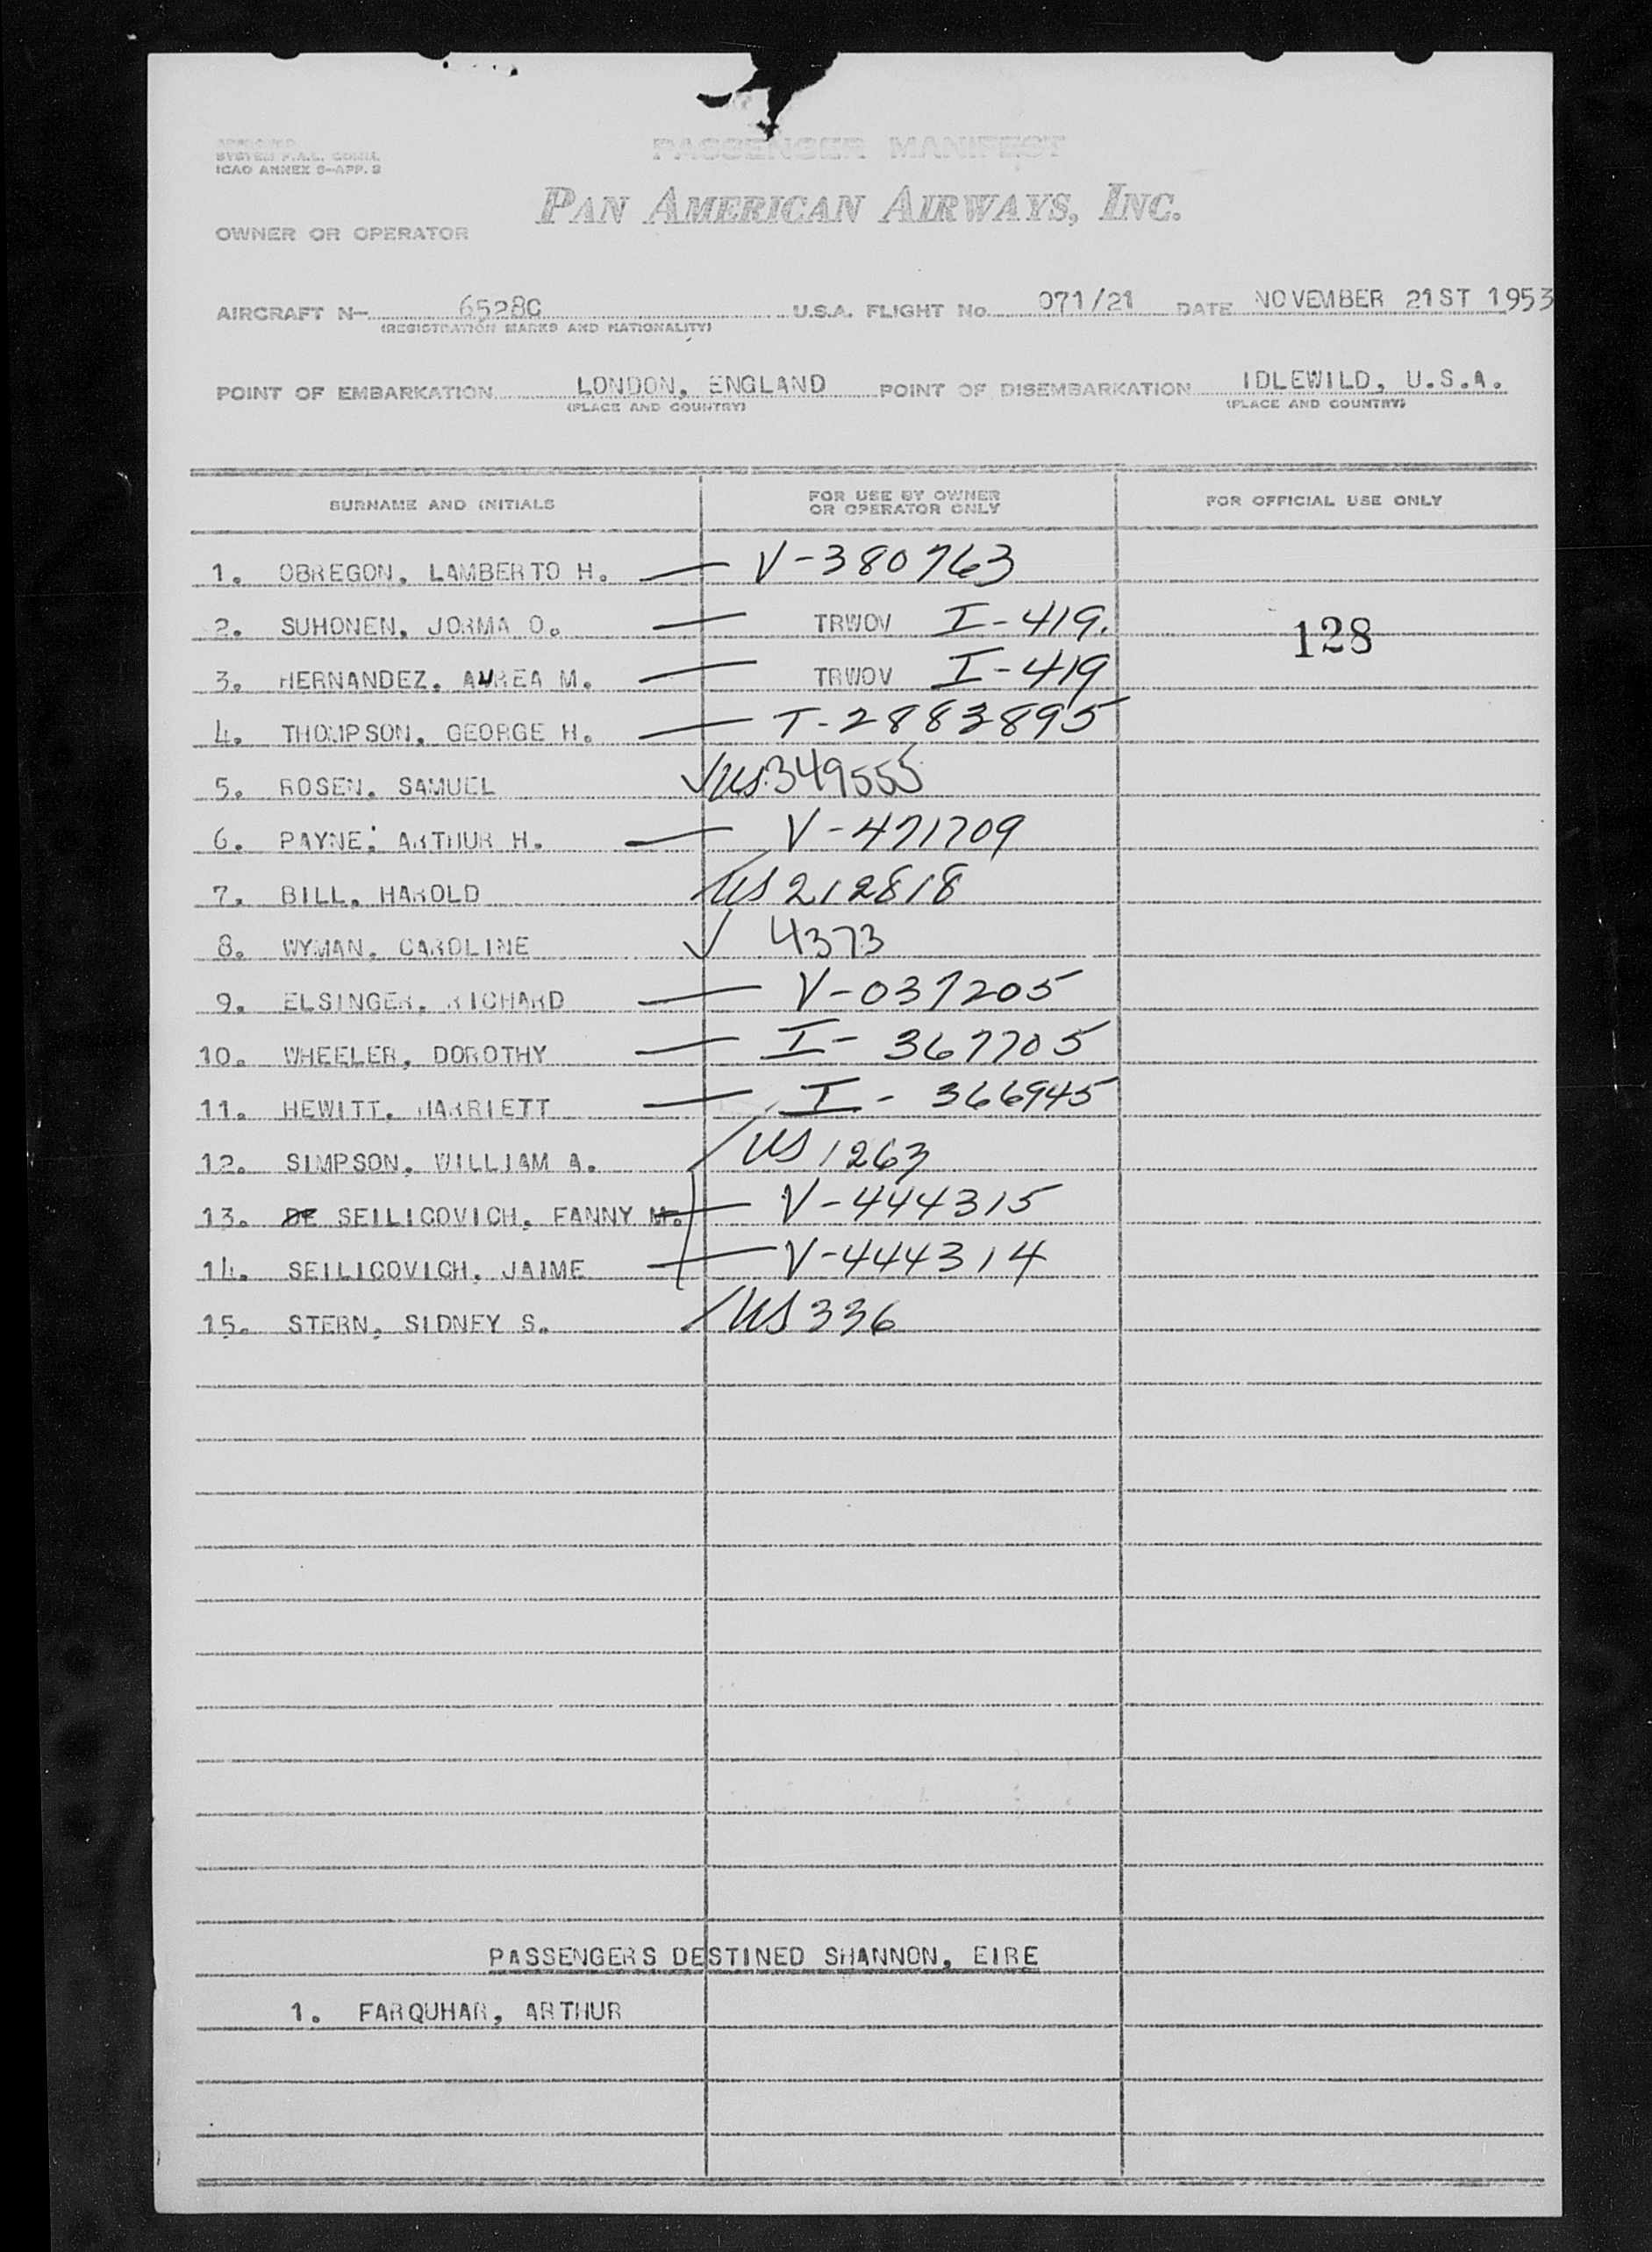 SYSTEM F.A.L. COMM.
ICAO ANNEX 9-APP. 3
PASSENGER MANIFEST
PAN AMERICAN AIRWAYS, INC.
OWNER OR OPERATOR
AIRCRAFT N- 6528C U.S.A. FLIGHT No. 071/21 DATE NOVEMBER 21ST 1953
(REGISTRATION MARKS AND NATIONALITY)
POINT OF EMBARKATION LONDON, ENGLAND POINT OF DISEMBARKATION IDLEWILD, U.S.A.
(PLACE AND COUNTRY) (PLACE AND COUNTRY)
SURNAME AND INITIALS FOR USE BY OWNER OR OPERATOR ONLY FOR OFFICIAL USE ONLY
1. OBREGON, LAMBERTO H. — V-380763
2. SUHONEN, JORMA O. — TRWOV I-419.
128
3. HERNANDEZ, AUREA M. — TRWOV I-419
4. THOMPSON, GEORGE H. — T-2883895
5. ROSEN, SAMUEL ✓ US 349555
6. PAYNE, ARTHUR H. — V-471709
7. BILL, HAROLD / US 212818
8. WYMAN, CAROLINE ✓ 4373
9. ELSINGER, RICHARD — V-037205
10. WHEELER, DOROTHY — I-367705
11. HEWITT, HARRIETT — I-366945
12. SIMPSON, WILLIAM A. / US 1263
13. DE SEILICOVICH, FANNY M. — V-444315
14. SEILICOVICH, JAIME — V-444314
15. STERN, SIDNEY S. / US 336
PASSENGERS DESTINED SHANNON, EIRE
1. FARQUHAR, ARTHUR